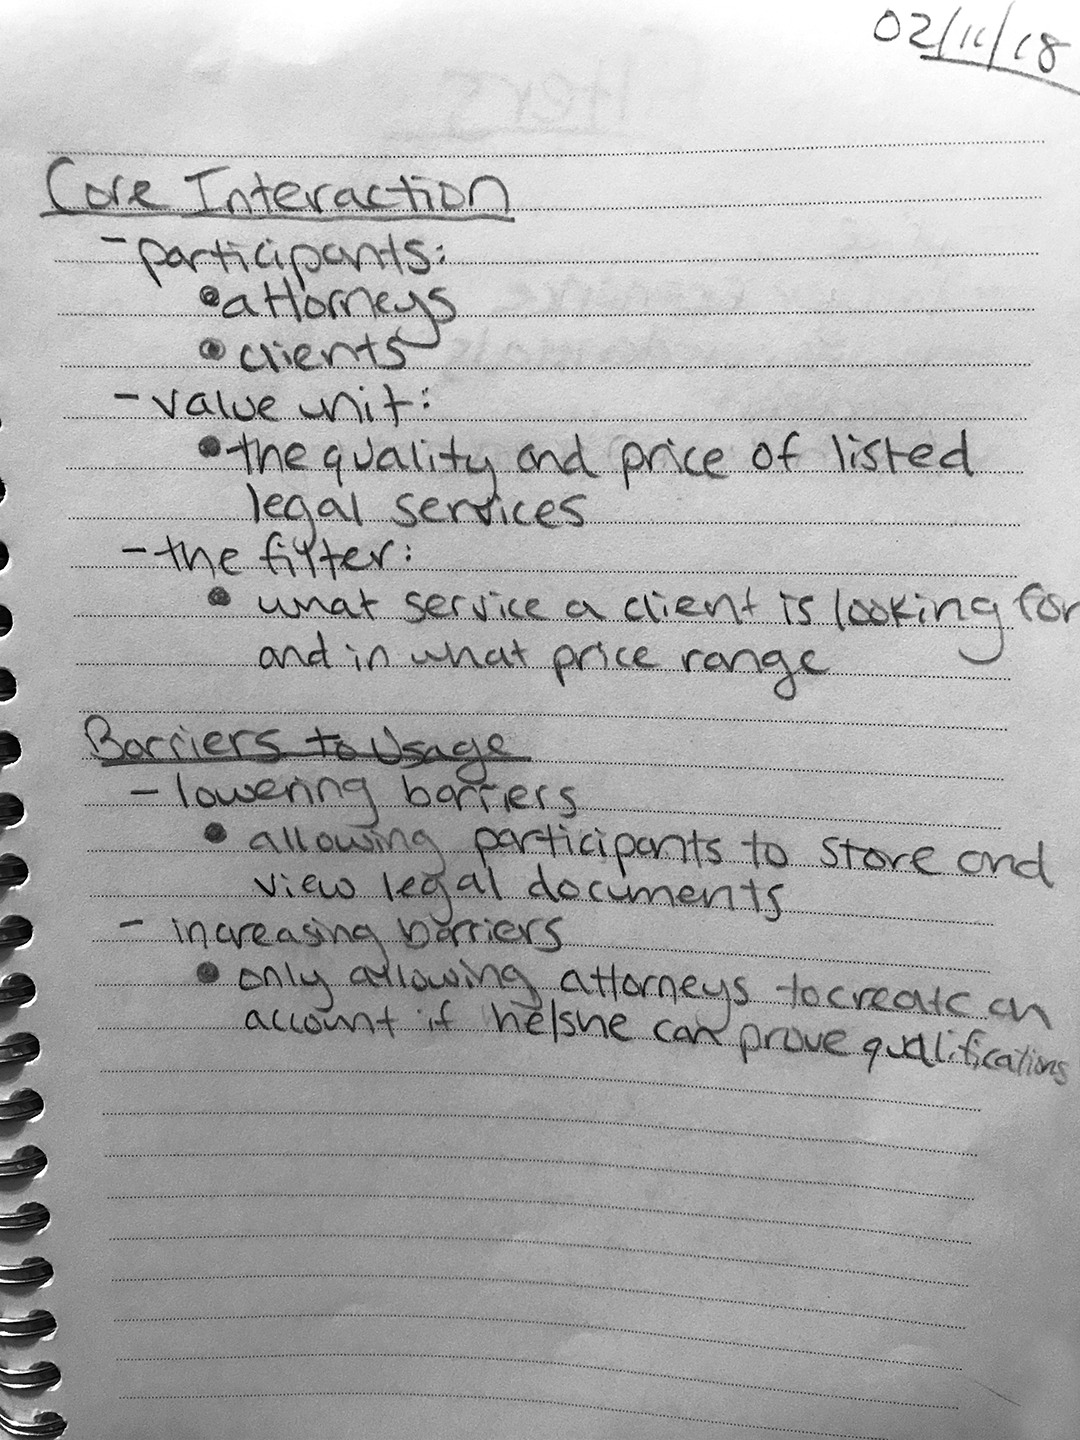 02/11/18
Core Interaction
- participants:
• attorneys
• clients
- value unit:
• the quality and price of listed
legal services
- the filter:
• what service a client is looking for
and in what price range
Barriers to Usage
- lowering barriers
• allowing participants to store and
view legal documents
- increasing barriers
• only allowing attorneys to create an
account if he/she can prove qualifications